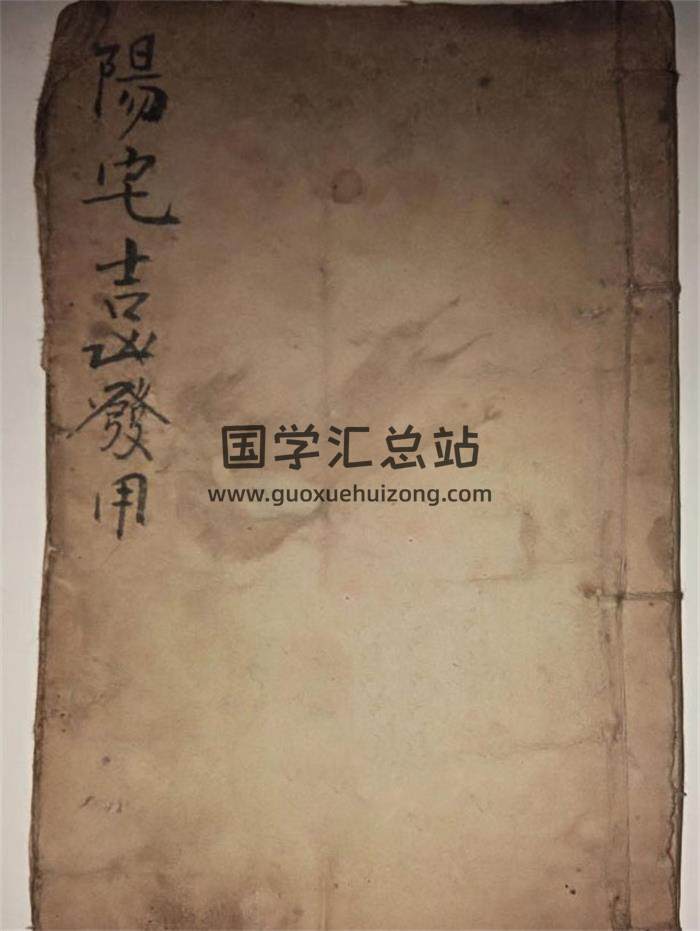 陽宅吉凶發用
国学汇总站
www.guoxuehuizong.com